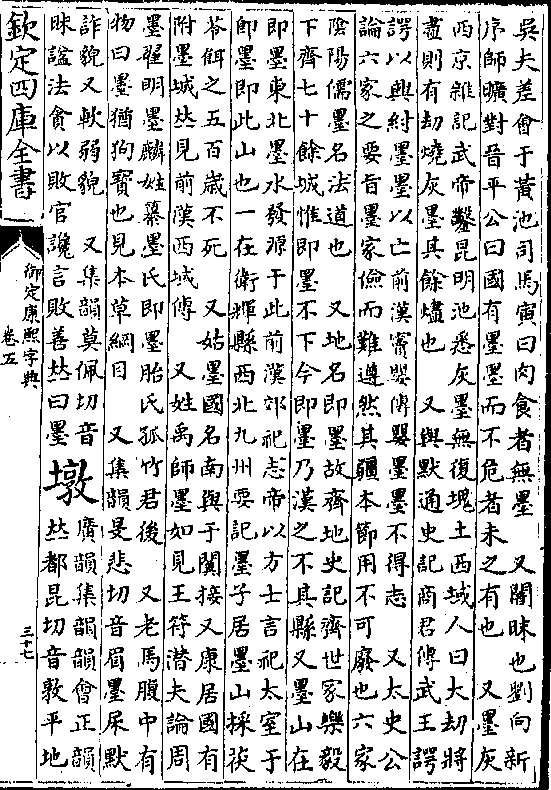 吳夫差會于黃池司馬寅曰肉食者無墨　又闇昧也劉向新
序師曠對晉平公曰國有墨墨而不危者未之有也　又墨灰
西京雜記武帝鑿昆明池悉灰墨無復塊土西域人曰大劫將
盡則有劫燒灰墨其餘燼也　又與默通史記商君傳武王諤
諤以興紂墨墨以亡前漢竇嬰傳嬰墨墨不得志　又太史公
論六家之要旨墨家儉而難遵然其疆本節用不可廢也六家
陰陽儒墨名法道也　又地名即墨故齊地史記齊世家樂毅
下齊七十餘城惟即墨不下今即墨乃漢之不其縣又墨山在
即墨東北墨水發源于此前漢郊祀志帝以方士言祀太室于
即墨即此山也一在衛輝縣西北九州要記墨子居墨山採茯
苓餌之五百歲不死　又姑墨國名南與于闐接又康居國有
附墨城𠀤見前漢西域傳　又姓禹師墨如見王符潛夫論周
墨翟明墨麟姓纂墨氏即墨胎氏孤竹君後　又老馬腹中有
物曰墨猶狗寶也見本草綱目　又集韻旻悲切音眉墨杘默
詐貌又軟弱貌　又集韻莫佩切音
昧諡法貪以敗官讒言敗善𠀤曰墨
墩
廣韻集韻韻會正韻
𠀤都昆切音敦平地
欽定四庫全書
御定康熙字典
卷五
三十七